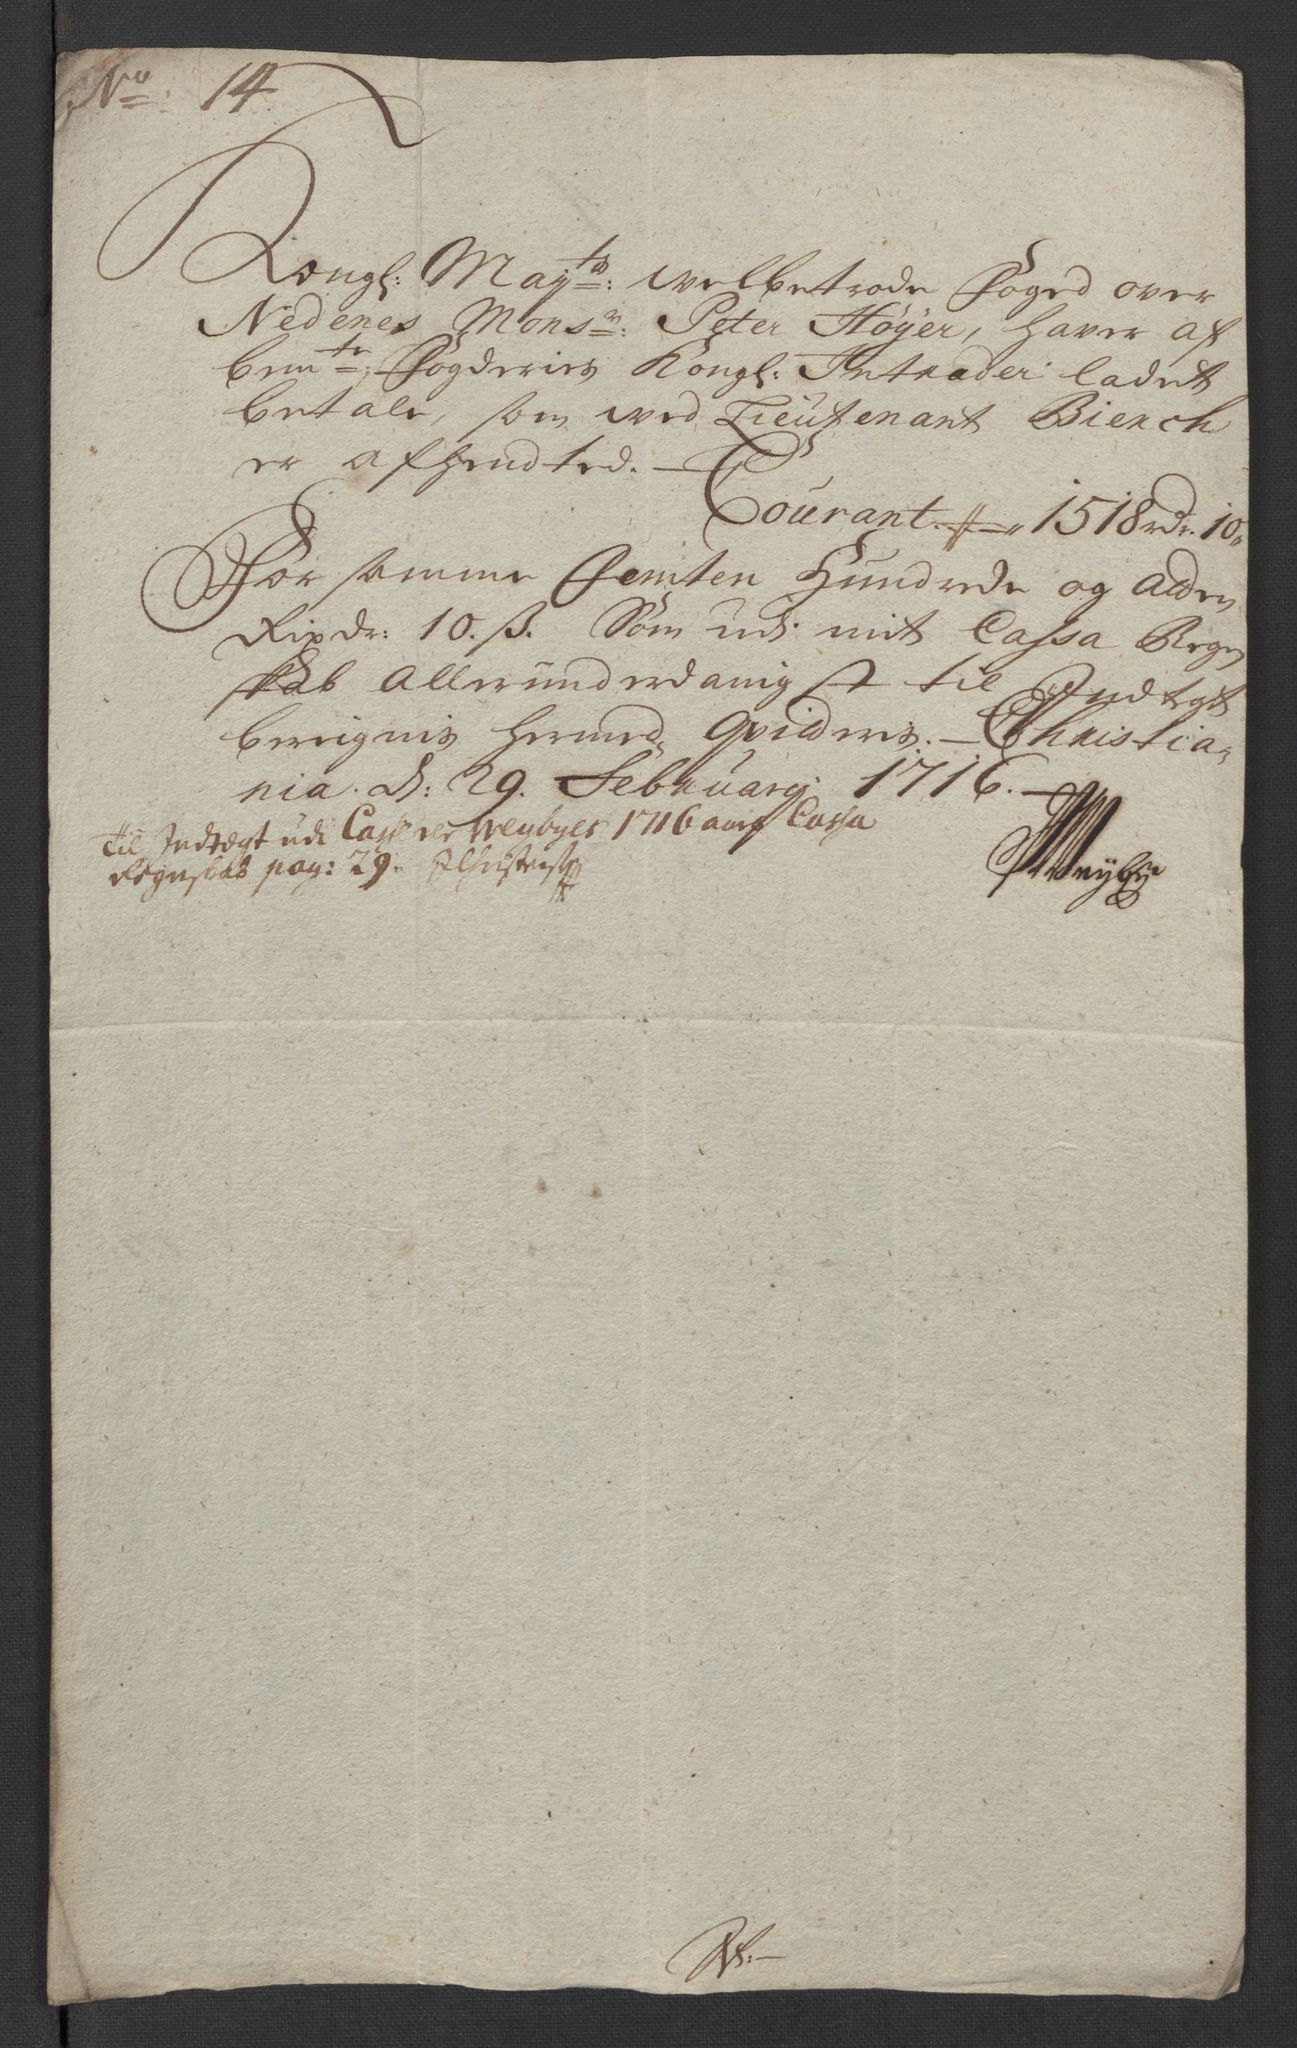 No: 14
Kongl: Mayts: welbetrode Foged over
Nedenes Monsr: Peter Höyer, haver af
bemte: Fogderies Kongl: Intrader ladet
betale, som ved Lieutenant Bierch
er afhendted. —
Courant — 1518 rdr. 10
For samme Femten Hundrede og Atten
Rixdr: 10. ß. Som udj mit Cassa Regen
skab allerunderdanigst til Indtægt
bereignis hermed Qvideris. — Christia-
nia. d: 29. Februarij 1716. —
Weybye
til Indtægt udi Casserer Weybyes 1716 aars Cassa
Regnskab pag: 29.